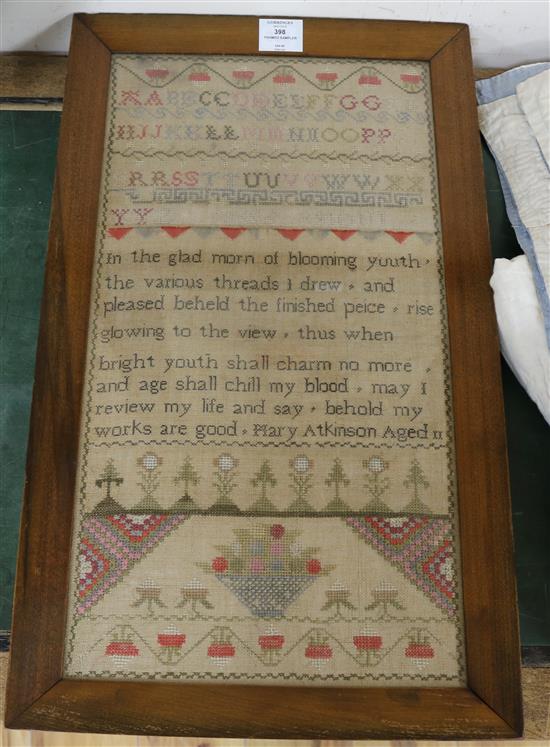 398
FRAMED SAMPLER
A A B B C C D D E E F F G G
H I J J K K L L M M N N O O P P
R R S S T T U U V V W W X X
Y Y
In the glad morn of blooming youth,
the various threads I drew, and
pleased beheld the finished peice, rise
glowing to the view, thus when
bright youth shall charm no more,
and age shall chill my blood, may I
review my life and say, behold my
works are good, Mary Atkinson Aged 11